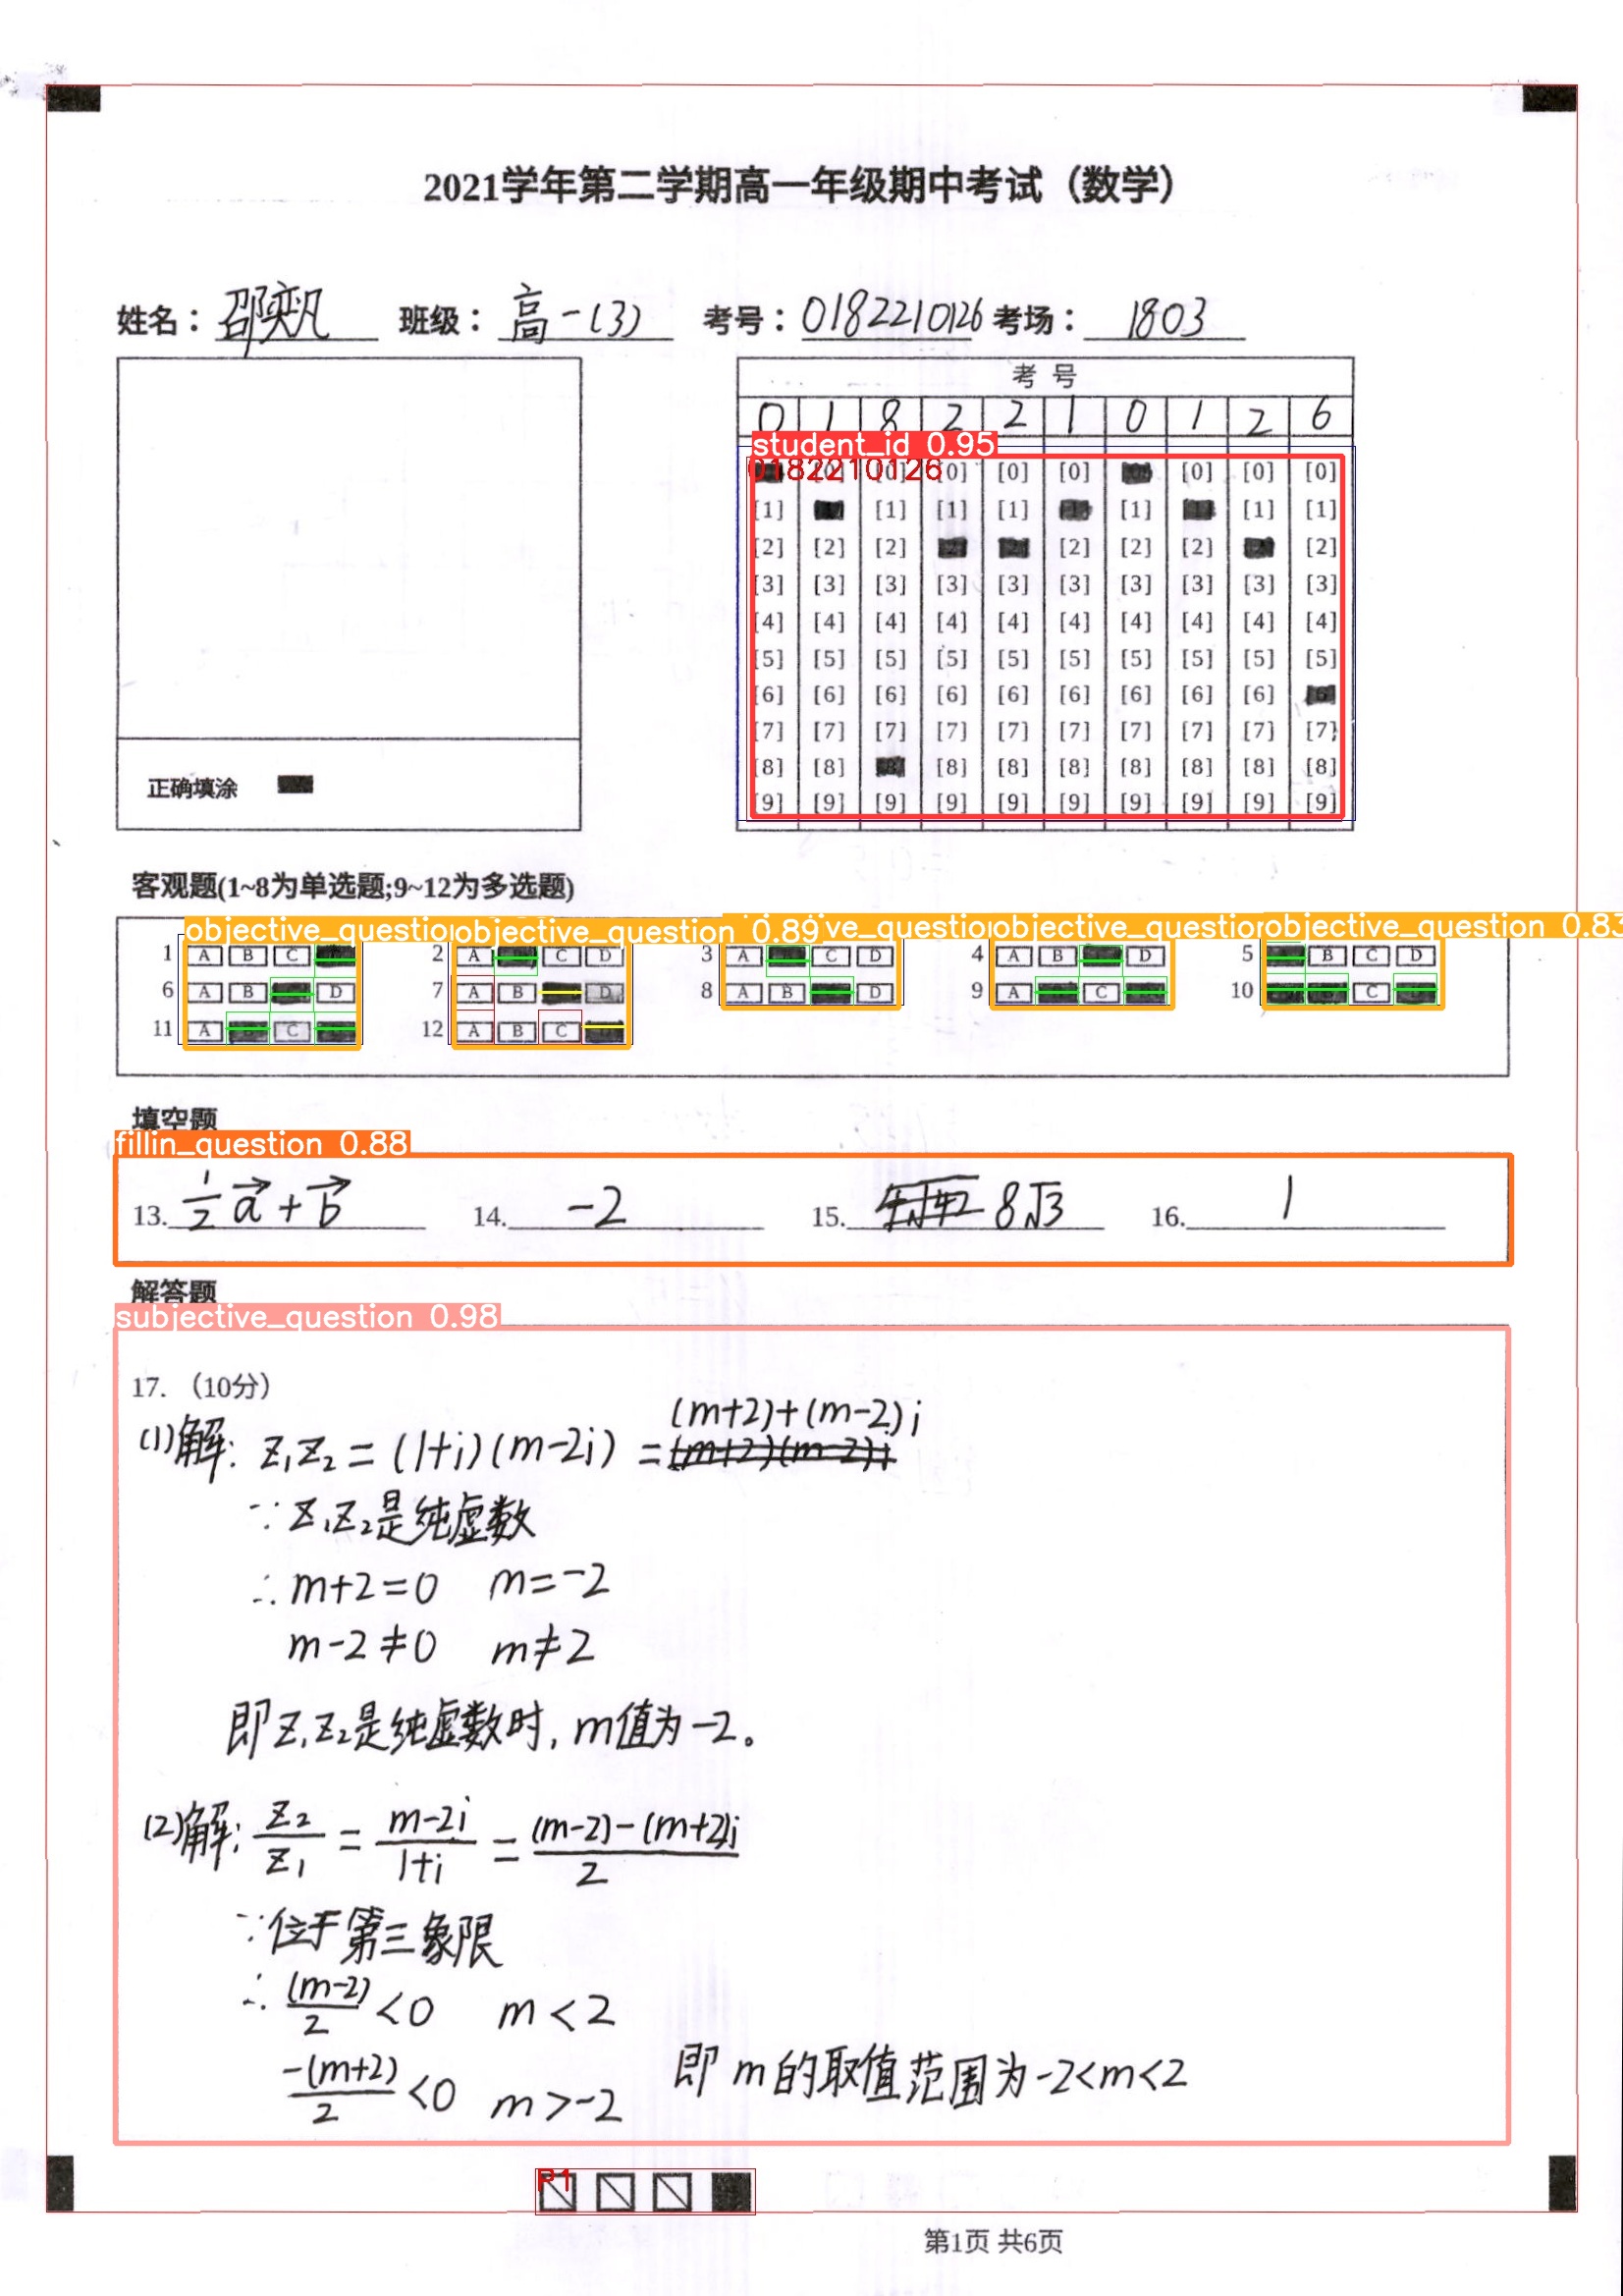 2021学年第二学期高一年级期中考试（数学）
姓名：邵奕凡 班级：高一(3) 考号：0182210126 考场：1803
考 号
0 1 8 2 2 1 0 1 2 6
student_id 0.95
0182210126
[0] [0] [0] [0] [0] [0] [0]
[1] [1] [1] [1] [1] [1] [1]
[2] [2] [2] [2] [2] [2] [2]
[3] [3] [3] [3] [3] [3] [3] [3] [3] [3]
[4] [4] [4] [4] [4] [4] [4] [4] [4] [4]
[5] [5] [5] [5] [5] [5] [5] [5] [5] [5]
[6] [6] [6] [6] [6] [6] [6] [6] [6] [6]
[7] [7] [7] [7] [7] [7] [7] [7] [7] [7]
[8] [8] [8] [8] [8] [8] [8] [8] [8]
[9] [9] [9] [9] [9] [9] [9] [9] [9] [9]
正确填涂
客观题(1~8为单选题;9~12为多选题)
objective_questio objective_question 0.89 ve_questio objective_questio objective_question 0.83
1 A B C 2 A C D 3 A C D 4 A B D 5 B C D
6 A B D 7 A B D 8 A B D 9 A C 10 C
11 A B C 12 A B C
填空题
fillin_question 0.88
13. 1/2 a⃗ + b⃗ 14. -2 15. 8√3 16. 1
解答题
subjective_question 0.98
17. （10分）
(1)解: z₁z₂ = (1+i)(m-2i) = (m+2)+(m-2)i
(m+2)(m-2)i
∵ z₁z₂是纯虚数
∴ m+2=0 m=-2
m-2≠0 m≠2
即z₁z₂是纯虚数时, m值为-2。
(2)解: z₂/z₁ = (m-2i)/(1+i) = ((m-2)-(m+2)i)/2
∵位于第三象限
∴ (m-2)/2 <0 m<2
-(m+2)/2 <0 m>-2 即 m的取值范围为-2<m<2
P1
第1页 共6页